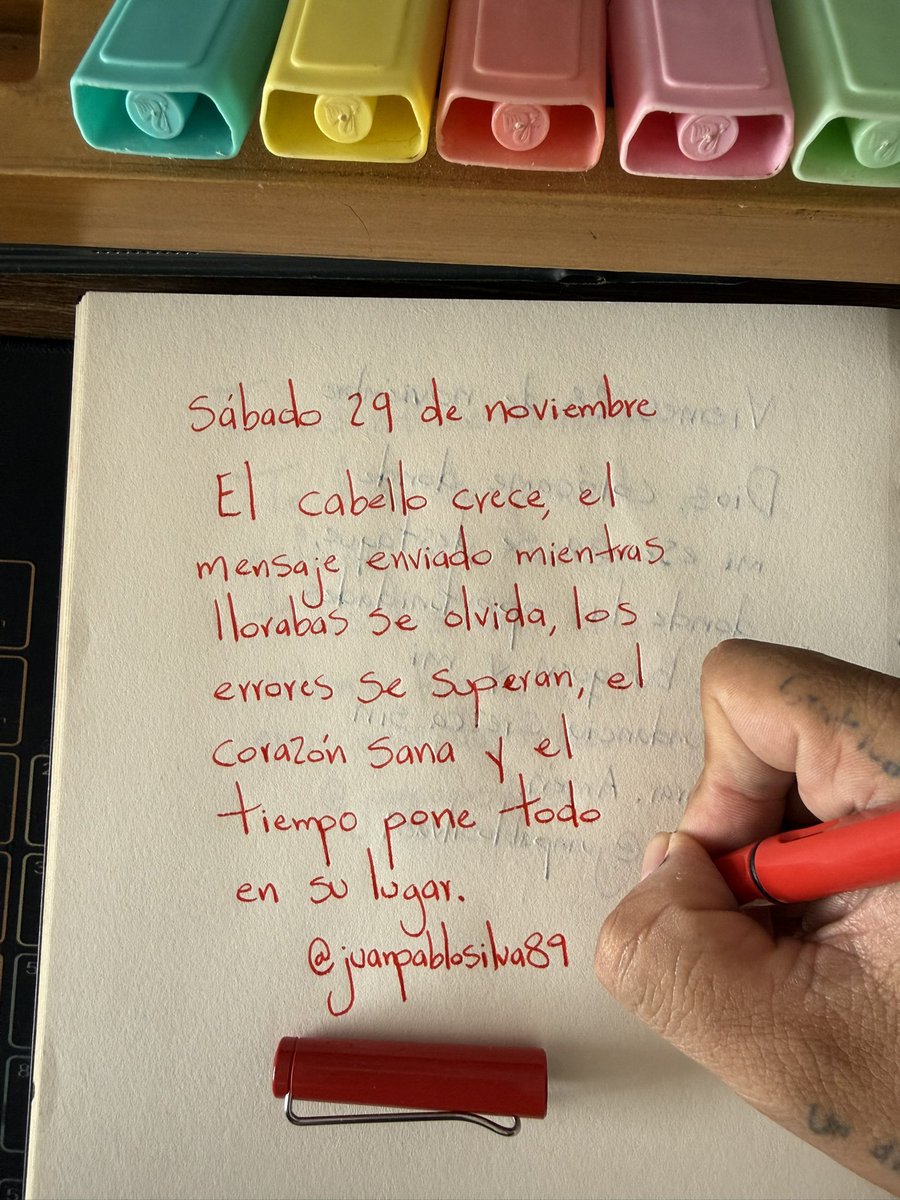 Sábado 29 de noviembre
El cabello crece, el
mensaje enviado mientras
llorabas se olvida, los
errores se superan, el
corazón sana y el
tiempo pone todo
en su lugar.
@juanpablosilva89